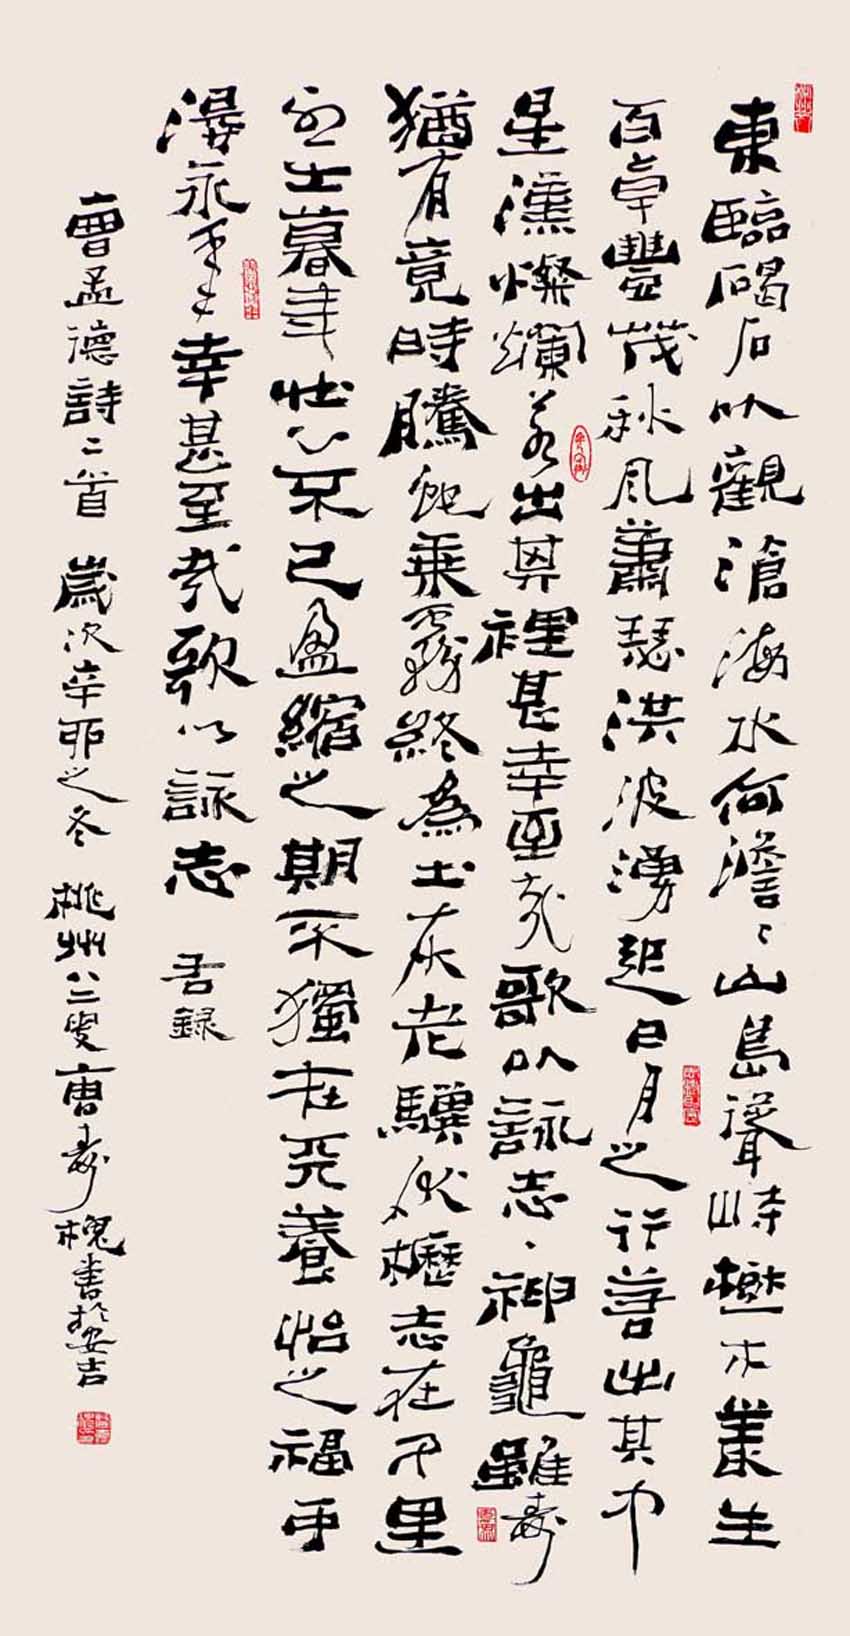 東臨碣石以觀滄海水何澹〻山島聳峙樹木叢生
百草豐茂秋風蕭瑟洪波湧起日月之行若出其中
星漢燦爛若出其裡甚幸至哉歌以詠志、神龜雖壽
猶有竟時騰蛇乘霧終為土灰老驥伏櫪志在千里
烈士暮年壯心不已盈縮之期不獨在天養怡之福可
得永年幸甚至哉歌以詠志 錄
曹孟德詩二首 歲次辛卯之冬 桃州八二叟曹壽槐書於安吉